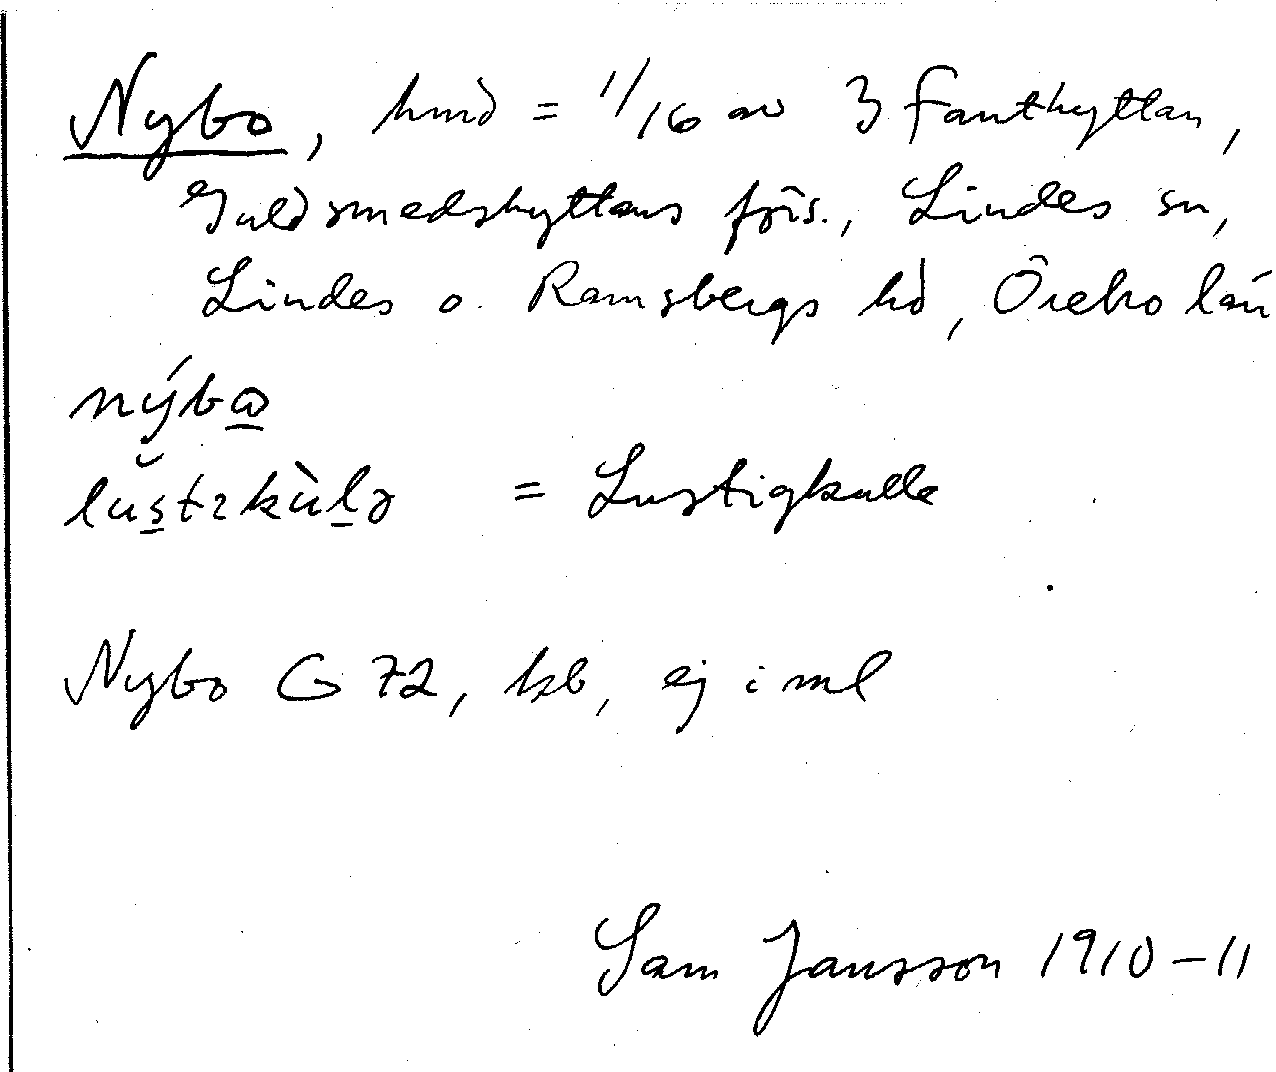 Nybo, hmd = 1/16 av 3 Fanthyttan,
Guldsmedshyttans förs., Lindes sn,
Lindes o. Ramsbergs hd, Örebro län
nýbɷ
lustɩkùlə = Lustigkulle
Nybo G 72, kb, ej i ml
Sam Jansson 1910-11